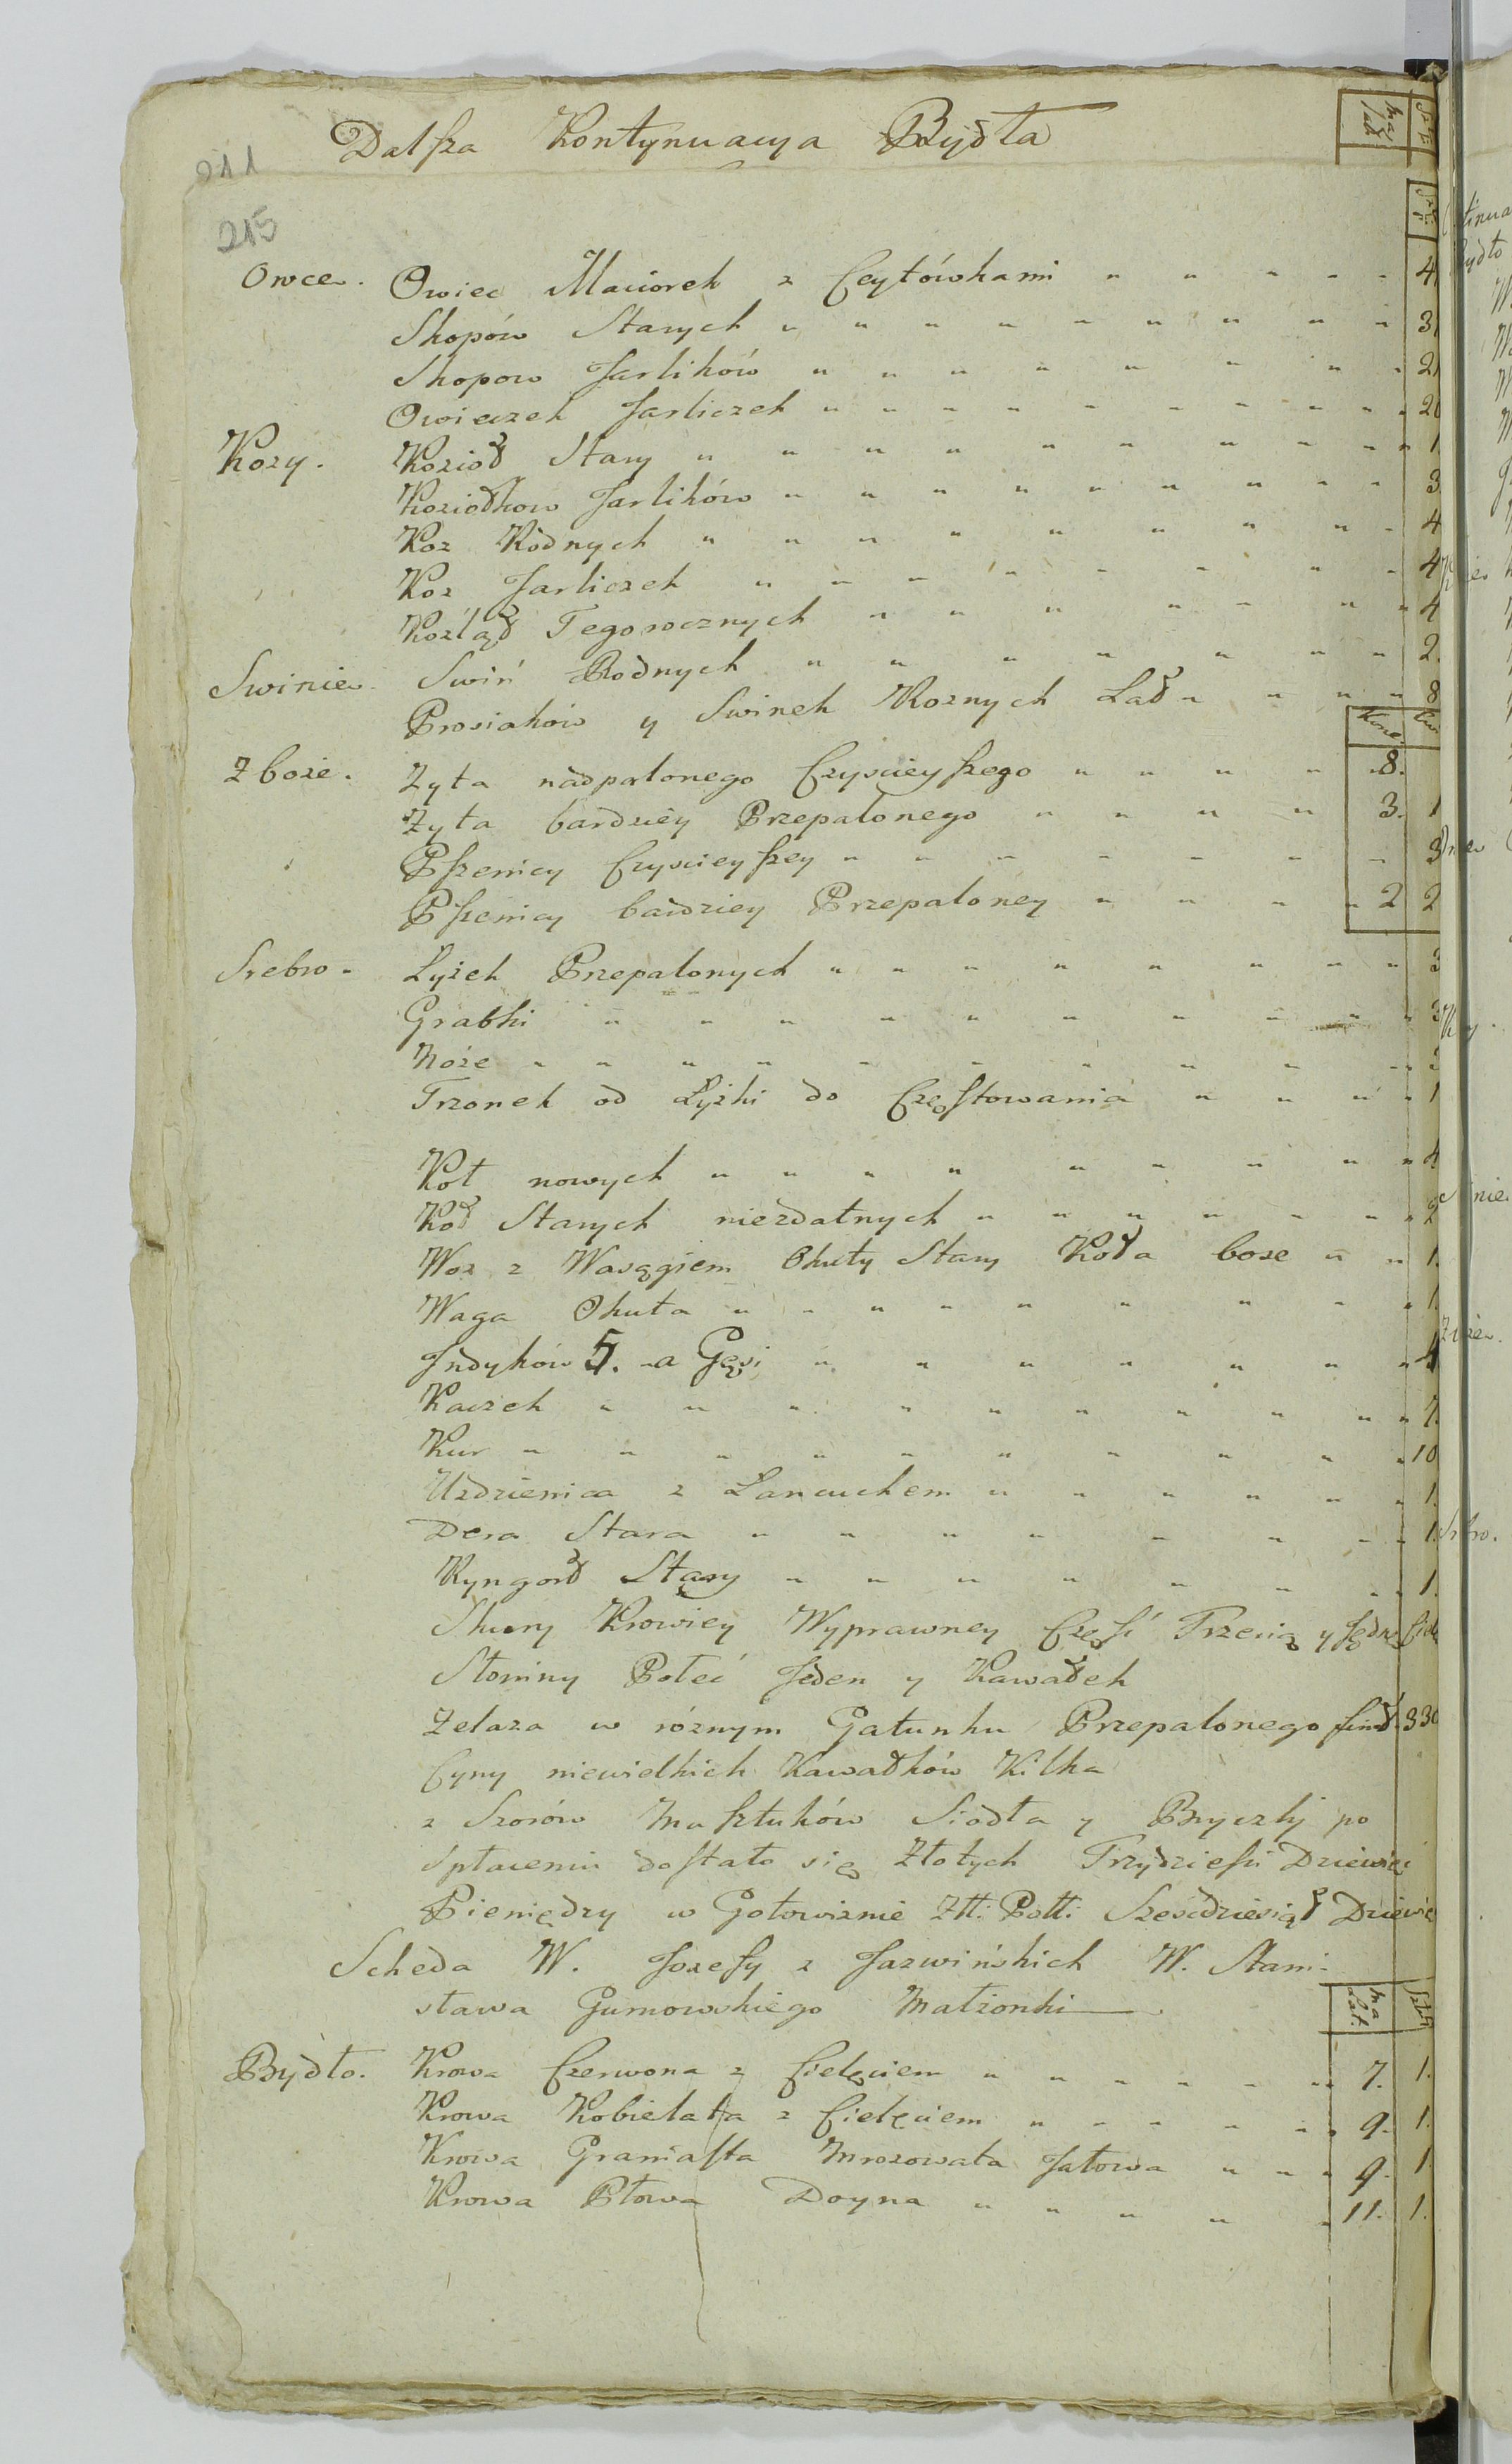 Dalsza Kontynuacya Bydła
ma lat
211
215
Owce. Owiec Maciorek z Ceytówkami " " " " " 4
Skopów Starych " " " " " " " " " 3
Skopow Jarlików " " " " " " " " 2
Owieczek Jarliczek " " " " " " " " " 2
Kozy. Kozioł Stary " " " " " " " " " 1
Koziołkow Jarlików " " " " " " " " " 3
Koz Rodnych " " " " " " " " 4
Koz Jarliczek " " " " " " " " 4
Koźląt Tegorocznych " " " " " " " 4
Swinie. Swiń Rodnych " " " " " " " 2.
Prosiaków y Swinek Roznych Lat " " " " 8
Korc.
Zboże. Zyta nadpalonego Czyscieyszego " " " " " 8.
Zyta bardziey Przepalonego " " " " 3. 1
Pszenicy Czyscieyszey " " " " " " " 3
Pszenicy bardziey Przepaloney " " " " 2 2
Srebro - Łyżek Przepalonych " " " " " " " " 3
Grabki " " " " " " " " " " 3
Noże " " " " " " " " " " 3
Trzonek od Łyżki do Częstowania " " " " 1
Koł nowych " " " " " " " " " 4
Koł Starych niezdatnych " " " " " " " 2
Woz z Wasągiem Okuty Stary Koła bose " " 1.
Waga Okuta " " " " " " " " " 1.
Jndyków 5. -a Gęsi " " " " " " " 4
Kaczek " " " " " " " " " " 7.
Kur " " " " " " " " " " 10
Uzdzienica z Lancuchem " " " " " " 1.
Dera Stara " " " " " " " " 1.
Kyngort Stary " " " " " " " " 1.
Skury Krowiey Wyprawney Częsć Trzecią y Jedne
Słoniny Połeć Jeden y Kawałek
Zelaza w róznym Gatunku Przepalonego funt. 330
Cyny niewielkich Kawałków Kilka
z Szorów Musztuków Siodła y Bryczki po
Spłaceniu dostało się Złotych Trzydziesci Dziewięć
Pieniędzy w Gotowiznie Złł: Poll: Szescdziesiąt Dziewię
Scheda W. Jozefy z Jazwińskich W. Stani-
sława Gumowskiego Małżonki
ma Lat. Sztuk
Bydło. Krowa Czerwona z Cielęciem " " " " " " 7. 1.
Krowa Kobielata z Cielęciem " " " " " " 9. 1.
Krowa Graniasta Mrozowata Jałowa " " " 9. 1
Krowa Płowa Doyna " " " " " 11. 1.